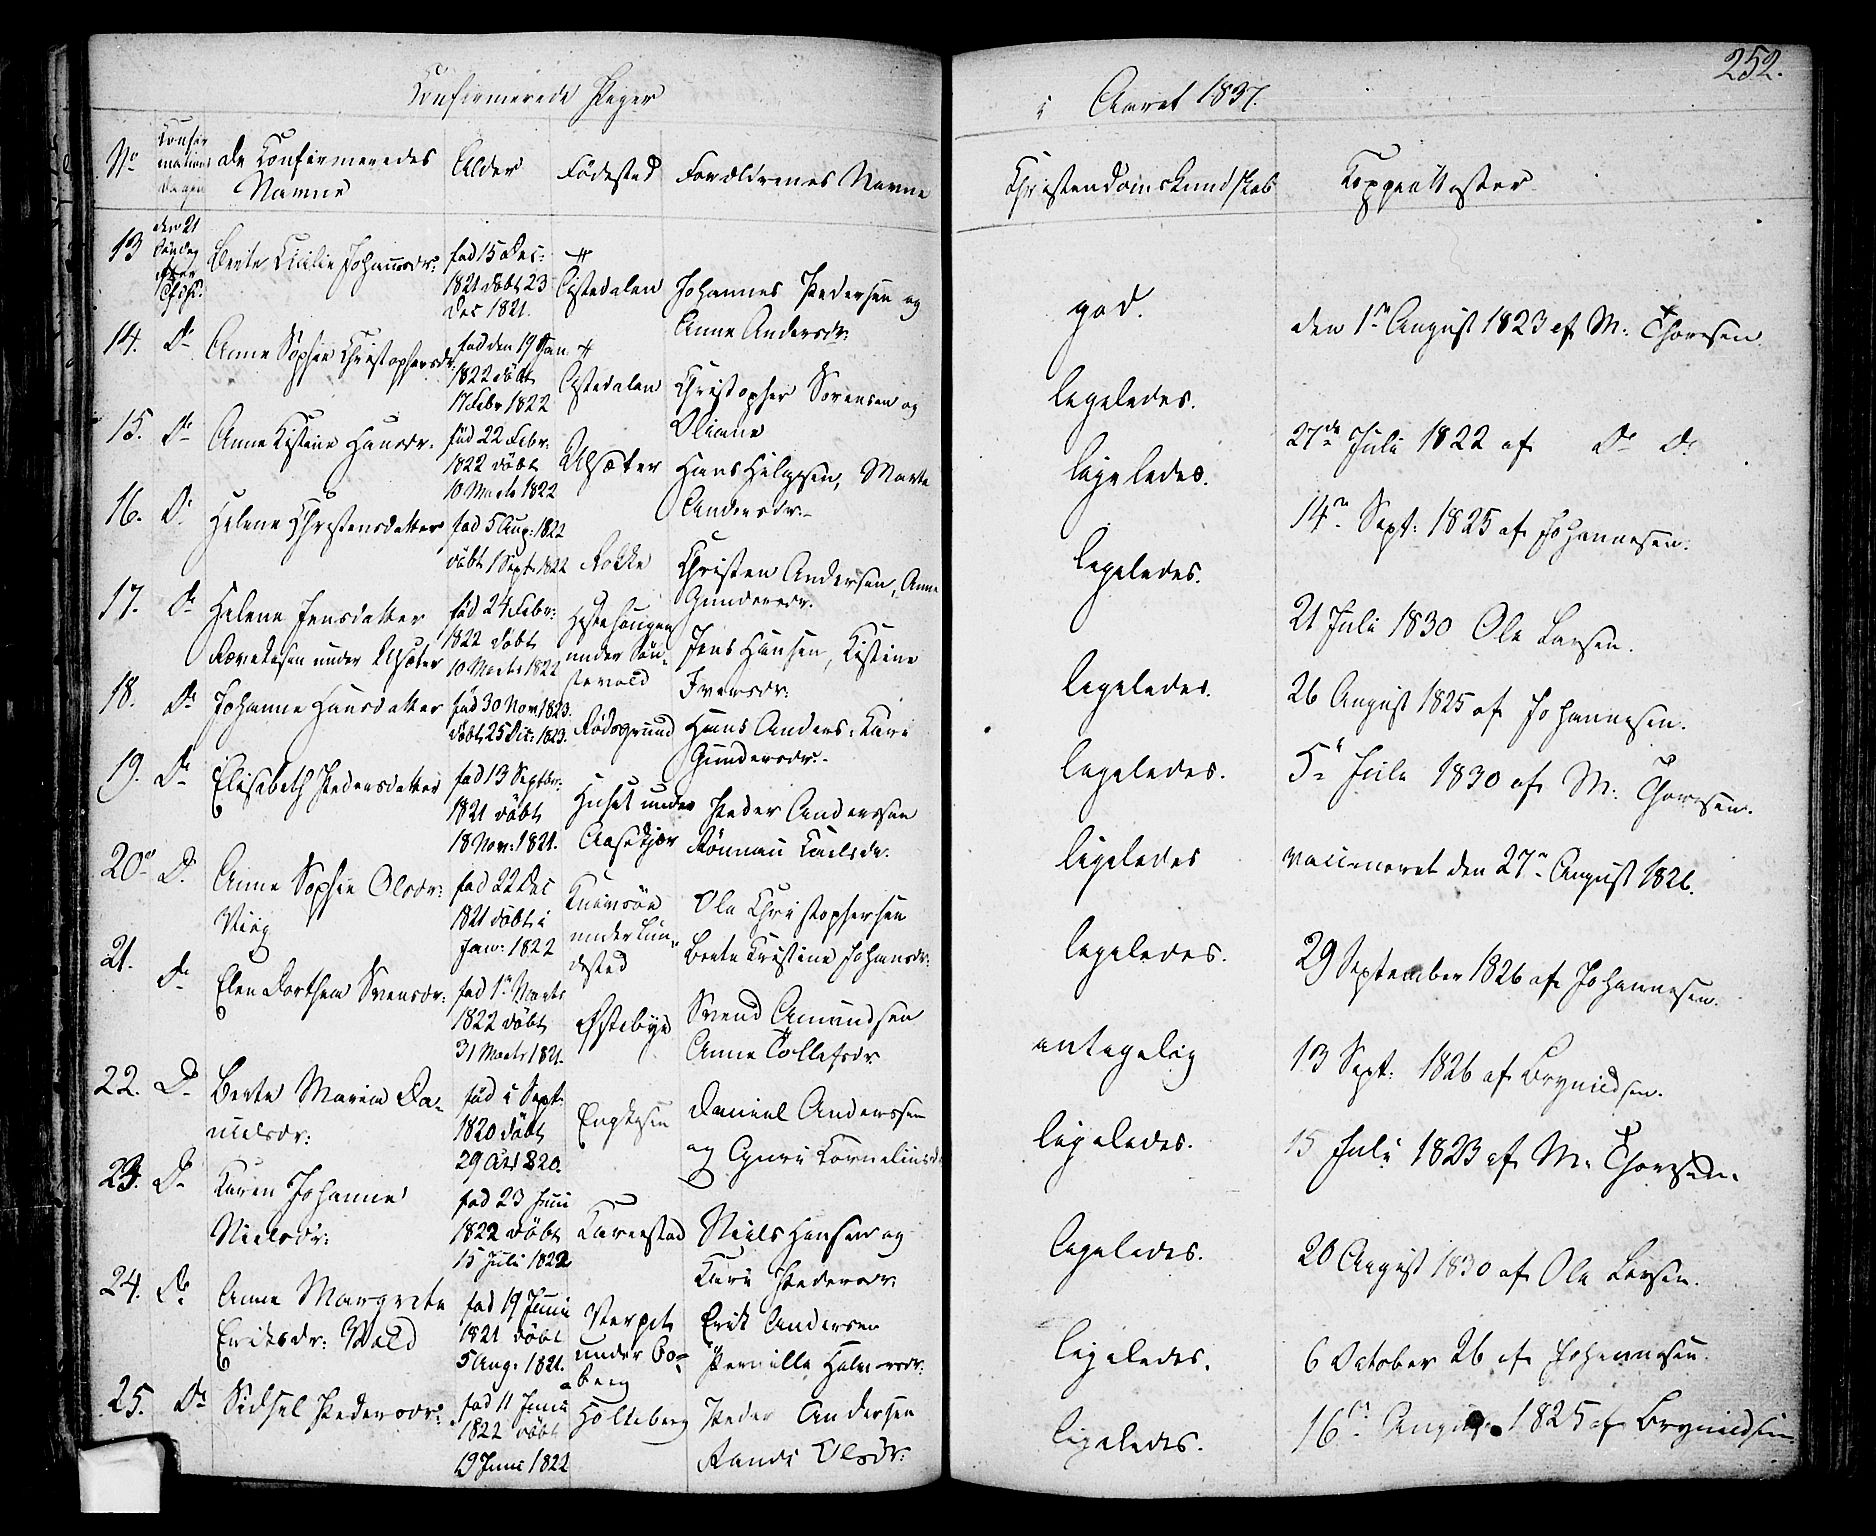 252.
Confirmerede Piger i Aaret 1837.
No
Confirmations Dagen
de Confirmeredes Navne
Alder
Födested
Forældrenes Navne
Christendomskundskab
Koppeattester
13 den 21 Søndag efter
Berte Cicilie Johannesdr:
fød 15 Dec:
1821 döbt 23
Dec 1821.
Tistedalen
Johannes Pedersen og
Anne Andersdr:
god.
den 1ste August 1823 af M: Thoresen
14. Do
Anne Sophie Christophersdr:
fød den 19 Jan
1822 döbt
17 Febr 1822
Tistedalen
Christopher Sörensen og
Oliane
ligeledes.
27de Juli 1822 af Do Do
15. Do
Anne Kistine Hansdr.
fød 22 Febr:
1822 döbt
10 Marts 1822
Ulsæter
Hans Helgesen, Marte
Andersdr:
ligeledes.
14de Sept: 1825 af Johannesen.
16. Do
Helene Christensdatter
fød 5 Aug: 1822
döbt 1 Sept 1822
Rokke
Christen Andersen, Anne
Gundersdr.
ligeledes.
21 Juli 1830 Ole Larsen.
17. Do
Helene Jensdatter
under Ulsæter
fød 24 Febr:
1822 döbt
10 Marts 1822
Hestehaugen
under Søn-
stevold
Jens Hansen, Kistine
Iversdr:
ligeledes.
26 August 1825 af Johannesen.
18. Do
Johanne Hansdatter
fød 30 Nov 1823.
döbt 25 Dec: 1823.
Rødsgrund
Hans Anders: Kari
Gundersdr:
ligeledes.
5te Juli 1830 af M: Thoresen.
19. Do
Elisabeth Pedersdatter
fød 13 Septbr:
1821 döbt
18 Nov: 1821.
Huset under
Aasekjær
Peder Anderssen
Rönnau Carlsdr.
ligeledes
vaccineret den 27de August 1821.
20 Do
Anne Sophie Olsdr:
Viig
fød 22 Dec
1821 döbt i
Jan: 1822
Knivsöe
under Lun-
desta​d
Ole Christophersen
Berte Kristine Johansdr:
ligeledes.
29 September 1826 af Johannesen.
21. Do
Elen Dorthea Svensdr:
fød 1te Marts
1822 döbt
31 Marts 1821.
Østebye
Svend Amundsen
Anne Tollefsdr
antagelig
13 Sept: 1826 af Brynildsen.
22. Do
Berte Maria Da-
nielsdr:
fød i Sept:
1820 döbt
29 Oct 820.
Daniel Anderssen
og Guri Corneliusdr
ligeledes.
15 Juli 1823 af M: Thoresen.
23. Do
Karen Johanne
Nielsdr:
fød 23 Juni
1822 döbt
15 Juli 1822
Niels Hansen og
Kari Pedersdr:
ligeledes.
20 August 1830 af Ole Larsen.
24. Do
Anne Margrete
Eriksdr: Wold
fød 19 Juni
1821 döbt
5 Aug: 1821.
under Bo-
berg
Erik Andersen
Pernille Halvorsdr:
ligeledes.
6 October 26 af Johannesen.
25. Do
Sidsel Pedersdr:
fød 11 Juni
1822 döbt
19 Juni 1822
Holteberg
Peder Andersen
Randi Olsdr:
ligeledes.
16de August 1825 af Brynildsen